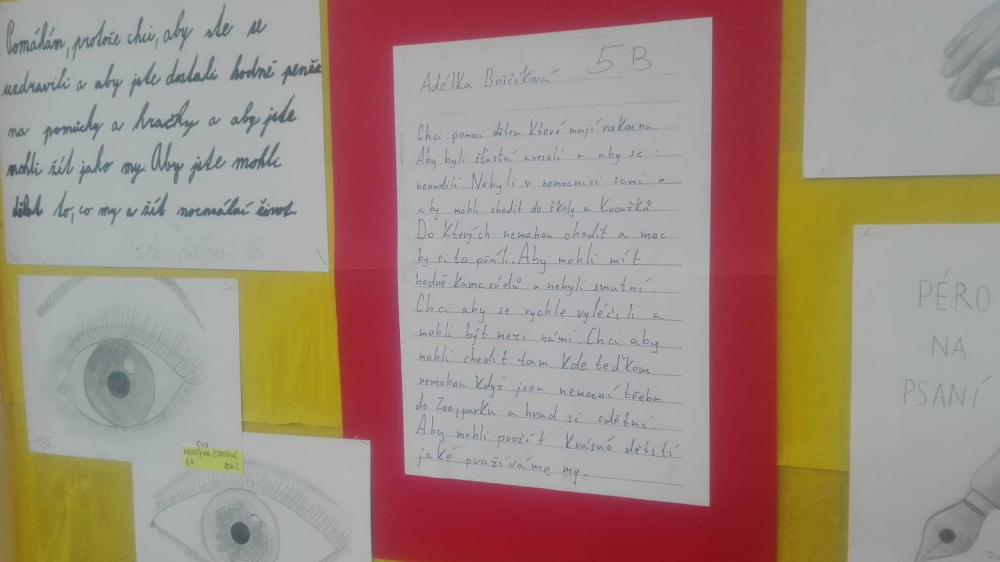 Pomáhám, protože chci, aby ste se
uzdravili a aby jste dostali hodně peněz
na pomůcky a hračky a aby jste
mohli žít jako my. Aby jste mohli
dělat to, co my a žít normální život.
5.B
Adélka Boščíková
Chci pomoci dětem. Které mají rakovinu.
Aby byli šťastní a veselí a aby se
nenudili. Nebyli v nemocnici sami a
aby mohli chodit do školy a kroužků.
Do kterých nemohou chodit a moc
by si to přáli. Aby mohli mít
hodně kamarádů a nebyli smutní.
Chci aby se rychle vyléčili a
mohli být mezi námi. Chci aby
mohli chodit tam kde teďkom
nemohou když jsou nemocní třeba
do Zoo, parku a hrad si sdětmi.
Aby mohli prožít krásné dětství
jaké prožíváme my.
PÉRO
NA
PSANÍ